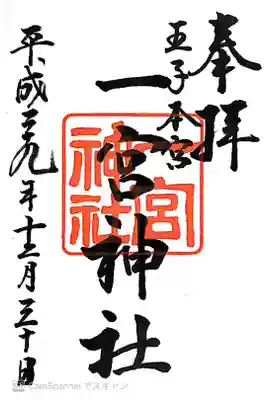 奉拝
王子本宮
一宮神社
一宮神社
平成二九年十二月三十日
CamScanner でスキャン